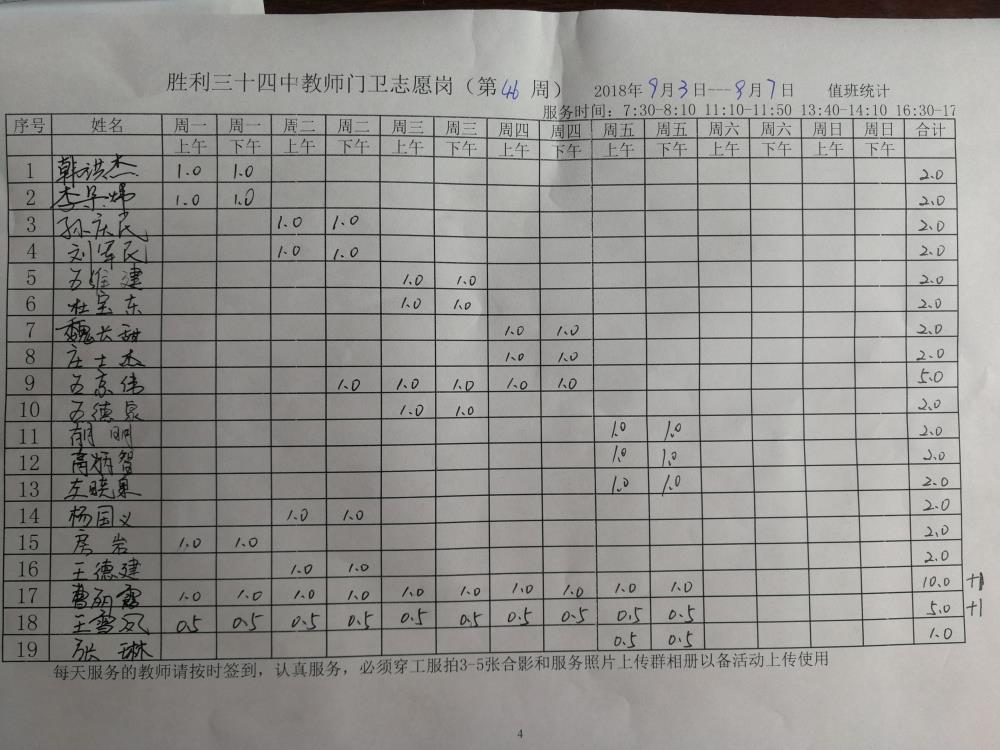 胜利三十四中教师门卫志愿岗（第46周） 2018年9月3日---9月7日 值班统计
服务时间：7:30-8:10 11:10-11:50 13:40-14:10 16:30-17
序号 姓名 周一 周一 周二 周二 周三 周三 周四 周四 周五 周五 周六 周六 周日 周日 合计
上午 下午 上午 下午 上午 下午 上午 下午 上午 下午 上午 下午 上午 下午
1 韩洪杰 1.0 1.0 2.0
2 李 炜 1.0 1.0 2.0
3 孙庆民 1.0 1.0 2.0
4 刘军民 1.0 1.0 2.0
5 王维建 1.0 1.0 2.0
6 杜宝东 1.0 1.0 2.0
7 魏长甜 1.0 1.0 2.0
8 庄士杰 1.0 1.0 2.0
9 王京伟 1.0 1.0 1.0 1.0 1.0 5.0
10 王德泉 1.0 1.0 2.0
11 胡明 1.0 1.0 2.0
12 高炳智 1.0 1.0 2.0
13 左晓泉 1.0 1.0 2.0
14 杨国义 1.0 1.0 2.0
15 房岩 1.0 1.0 2.0
16 王德建 1.0 1.0 2.0
17 曹丽霞 1.0 1.0 1.0 1.0 1.0 1.0 1.0 1.0 1.0 1.0 10.0 +1
18 王雪凤 0.5 0.5 0.5 0.5 0.5 0.5 0.5 0.5 0.5 0.5 5.0 +1
19 张琳 0.5 0.5 1.0
每天服务的教师请按时签到，认真服务，必须穿工服拍3-5张合影和服务照片上传群相册以备活动上传使用
4